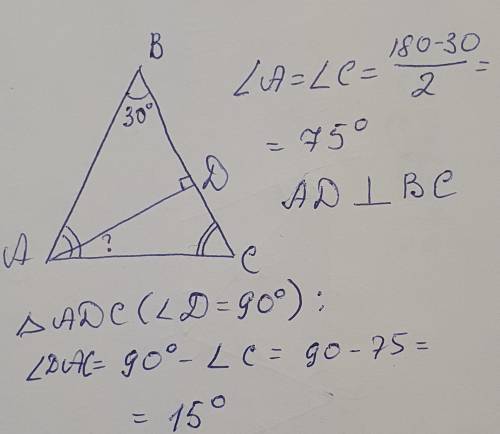 B
30°
D
A
?
C
∠A = ∠C = (180-30)/2 =
= 75°
AD ⊥ BC
△ADC (∠D = 90°):
∠DAC = 90° - ∠C = 90 - 75 =
= 15°